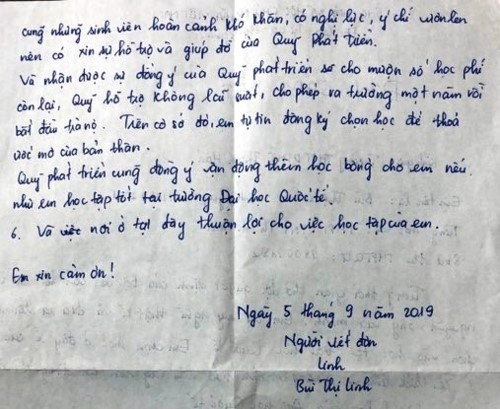 cung những sinh viên hoàn cảnh khó khăn, có nghị lực, ý chí vươn lên
nên có xin sự hỗ trợ và giúp đỡ của Quỹ Phát Triển.
Và nhận được sự đồng ý của Quỹ phát triển sẽ cho mượn số học phí
còn lại, Quỹ hỗ trợ không lãi suất, cho phép ra trường một năm rồi
bắt đầu trả nợ. Trên cơ sở đó, em tự tin đăng ký chọn học để thoả
ước mơ của bản thân.
Quỹ phát triển cũng đồng ý vận động thêm học bổng cho em nếu
như em học tập tốt tại trường Đại học Quốc tế.
6. Và việc nơi ở tại đây thuận lợi cho việc học tập của em.
Em xin cảm ơn!
Ngày 5 tháng 9 năm 2019
Người viết đơn
Linh
Bùi Thị Linh